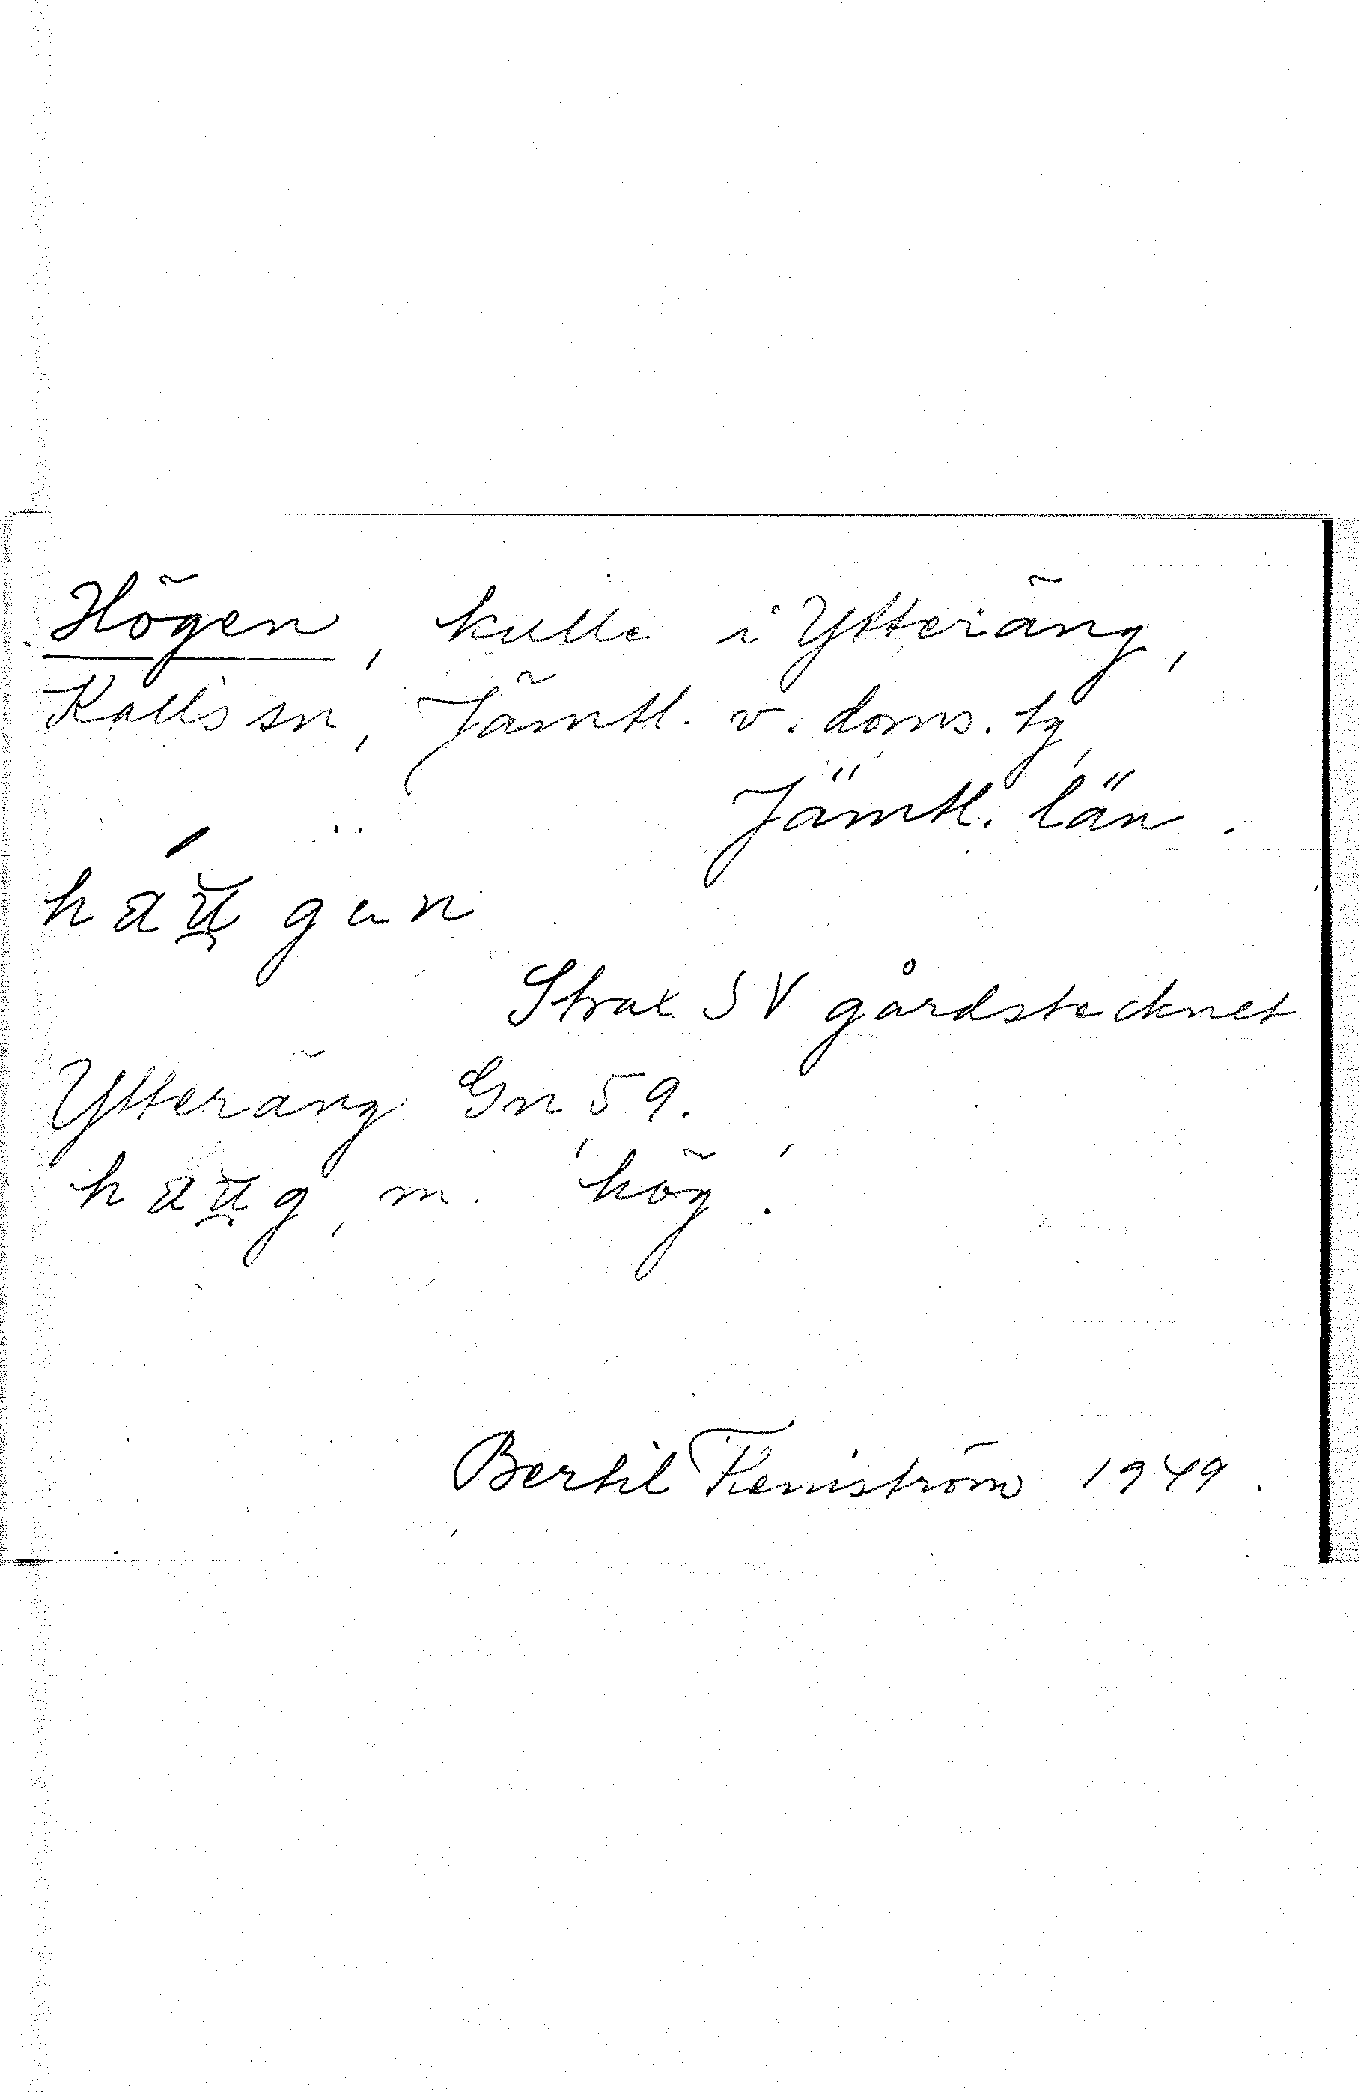 Högen, kulle i Ytteräng,
Kalls sn, Jämtl. v. doms. tg,
Jämtl. län.
háu̯gan
Strax SV gårdstecknet
Ytteräng Gn 59.
hau̯g, m. 'hög'.
Bertil Flemström 1949.